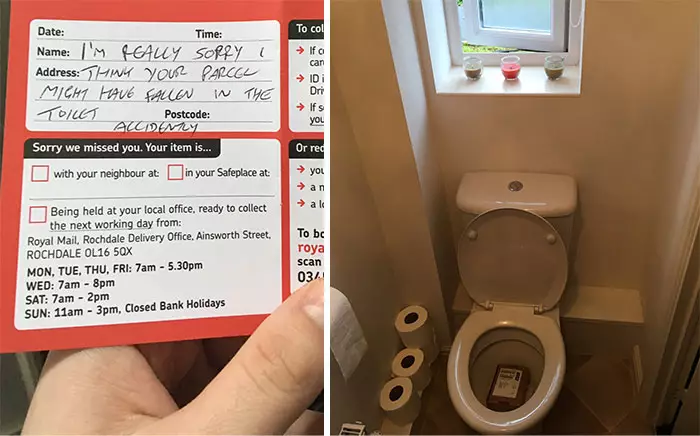 Date: Time:
Name: I'M REALLY SORRY I
Address: THINK YOUR PARCEL
MIGHT HAVE FALLEN IN THE
TOILET Postcode:
ACCIDENTLY
Sorry we missed you. Your item is...
with your neighbour at: in your Safeplace at:
Being held at your local office, ready to collect
the next working day from:
Royal Mail, Rochdale Delivery Office, Ainsworth Street,
ROCHDALE OL16 5QX
MON, TUE, THU, FRI: 7am - 5.30pm
WED: 7am - 8pm
SAT: 7am - 2pm
SUN: 11am - 3pm, Closed Bank Holidays
To col
If c
car
ID i
Dri
If s
you
Or rec
you
a n
a lo
To bo
roya
scan
034